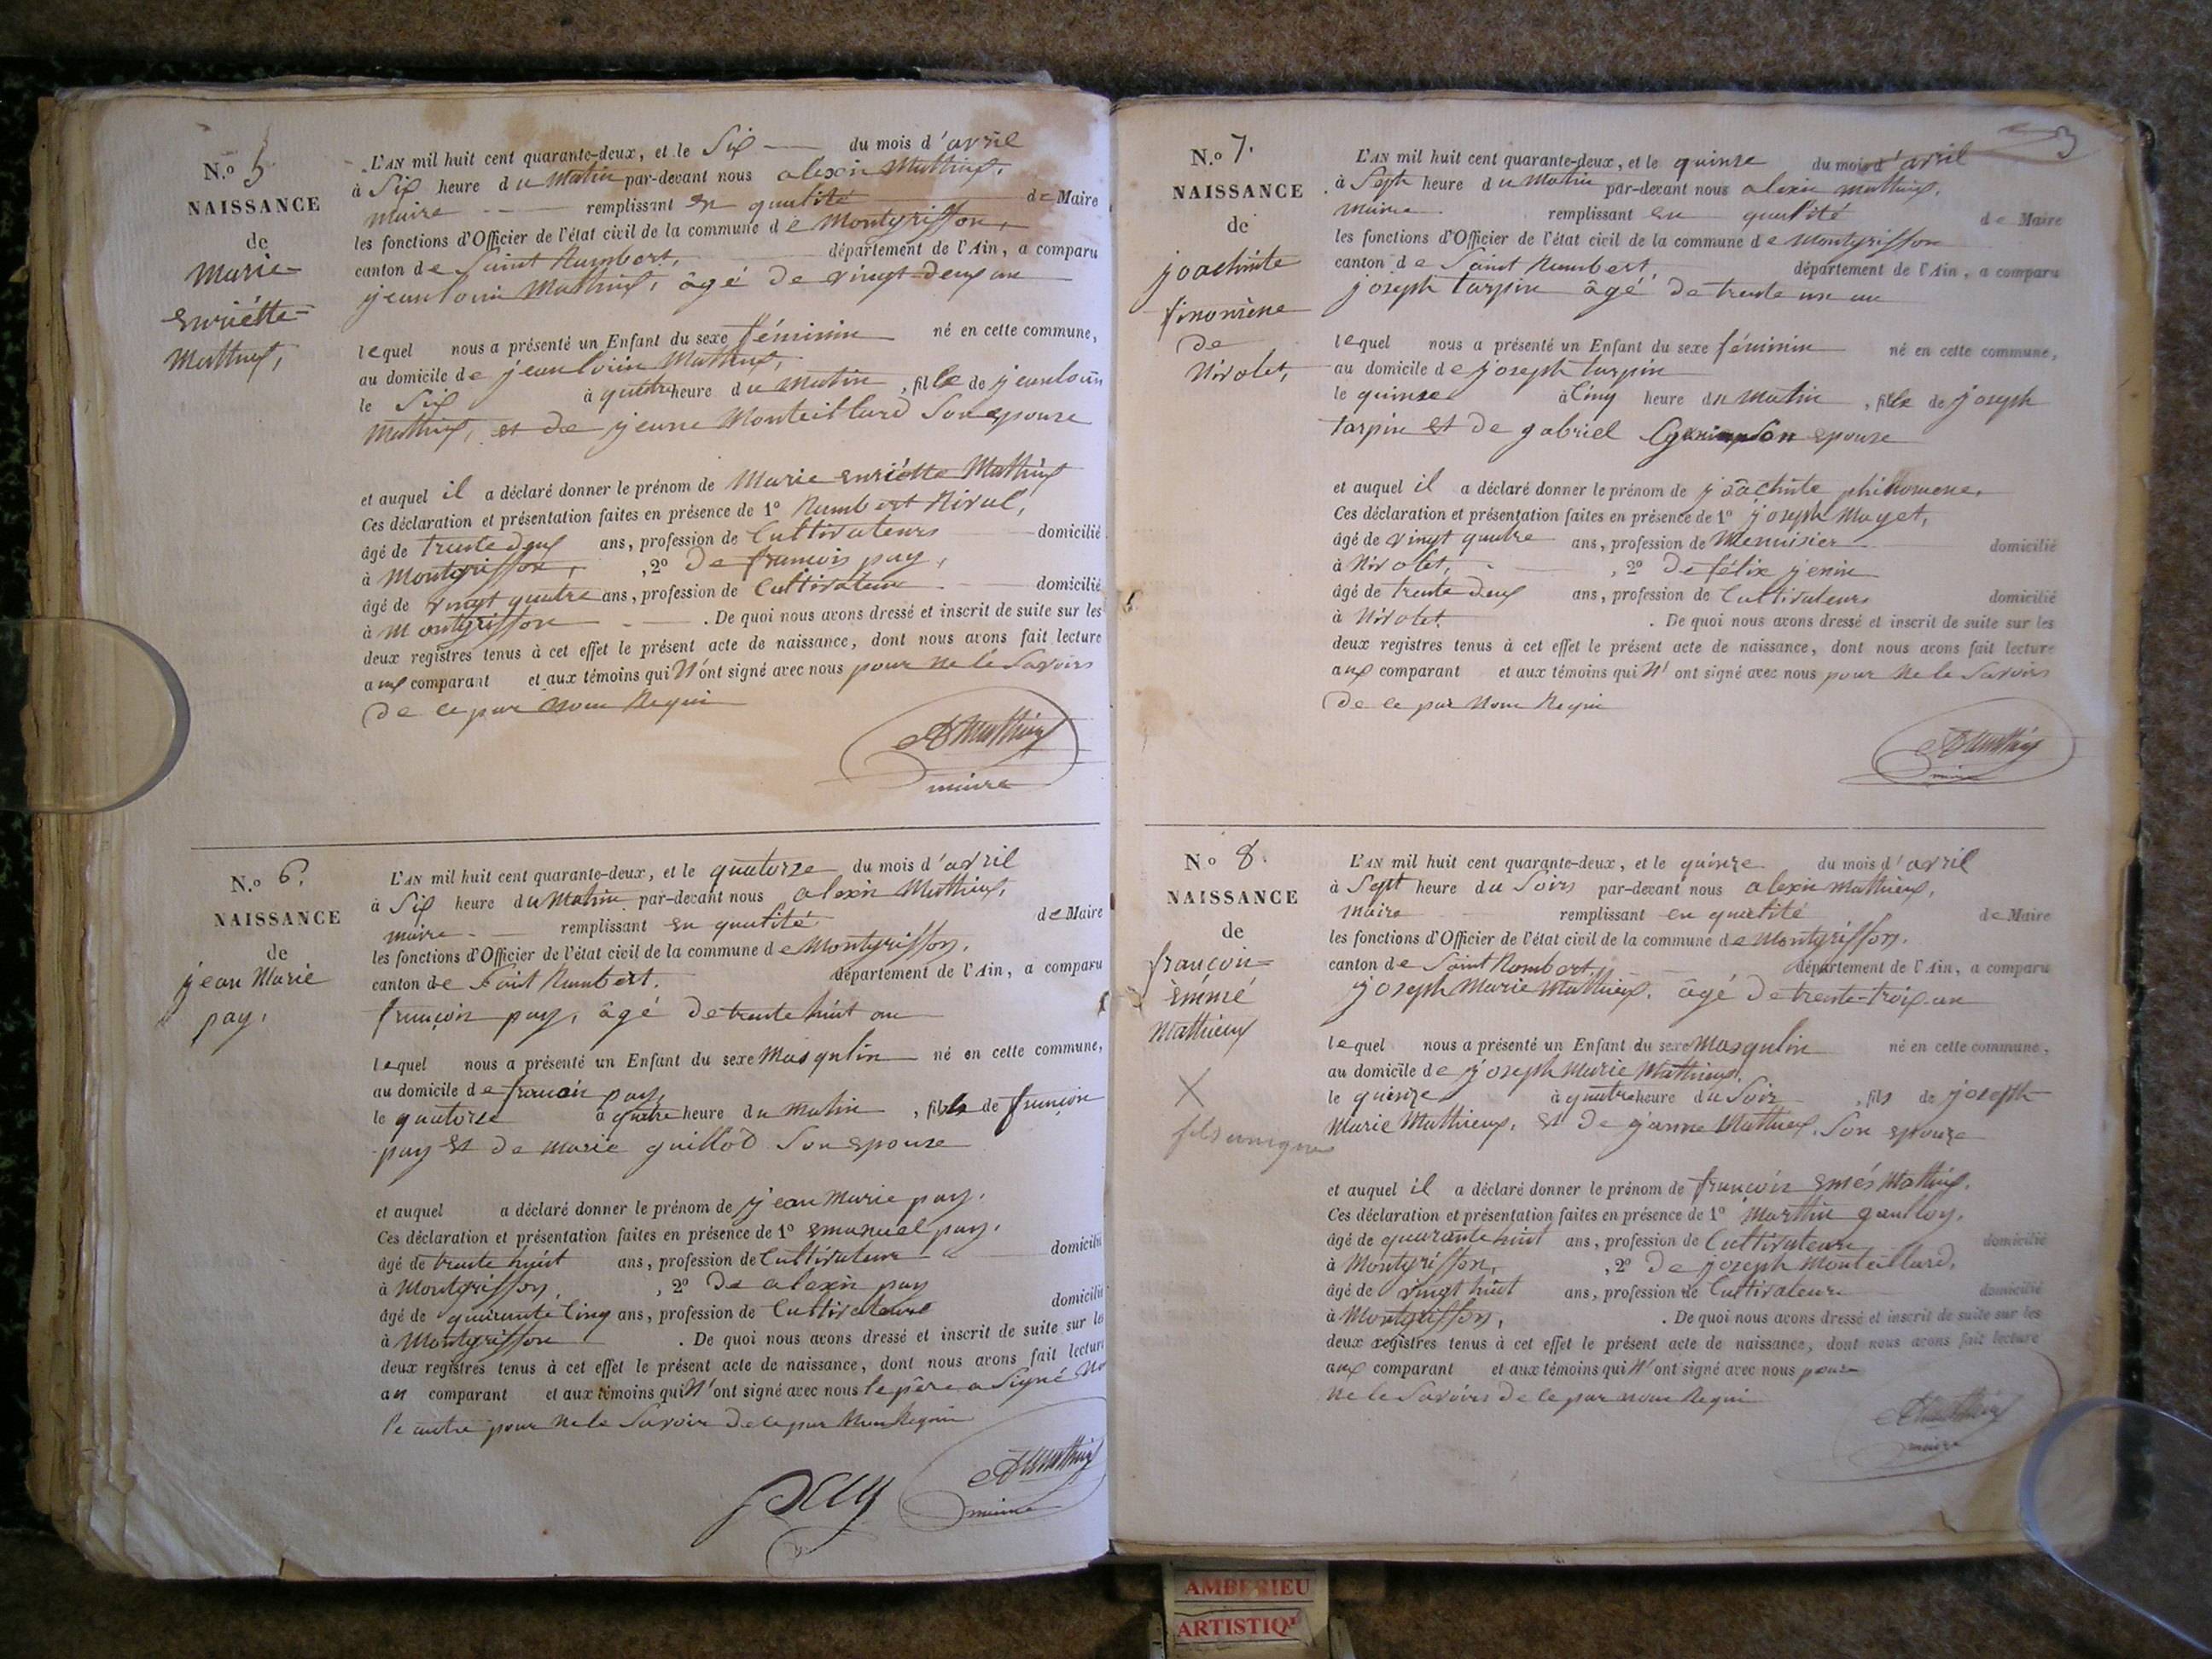 N.o 5
NAISSANCE
de
Marie
enriétte
Mathieux,
L'AN mil huit cent quarante-deux, et le Six du mois d'avril
à Six heure du Matin par-devant nous alexis Mathieux,
maire remplissant en qualité de Maire
les fonctions d'Officier de l'état civil de la commune de Montgriffon,
canton de Saint Rambert, département de l'Ain, a comparu
jean louis Mathieux, âgé de vingt deux an
lequel nous a présenté un Enfant du sexe féminin né en cette commune,
au domicile de jean louis Mathieux,
le Six à quatre heure du matin, fille de jean louis
Mathieux, et de jeanne Monteillard Son epouse
et auquel il a déclaré donner le prénom de Marie enriétte Mathieux
Ces déclaration et présentation faites en présence de 1o Rambert Nival,
âgé de trente deux ans, profession de Cultivateurs domicilié
à Montgriffon, , 2o de francois pay,
âgé de vingt quatre ans, profession de Cultivateur domicilié
à Montgriffon . De quoi nous avons dressé et inscrit de suite sur les
deux registres tenus à cet effet le présent acte de naissance, dont nous avons fait lecture
aux comparant et aux témoins qui N'ont signé avec nous pour ne le Savoirs
de ce par nous Requi
A Mathieux
maire
N.o 6.
NAISSANCE
de
jean Marie
pay,
L'AN mil huit cent quarante-deux, et le quatorze du mois d'avril
à Six heure du Matin par-devant nous alexis Mathieux,
maire remplissant en qualité de Maire
les fonctions d'Officier de l'état civil de la commune de Montgriffon,
canton de Saint Rambert, département de l'Ain, a comparu
françois pay, âgé de trente huit an
lequel nous a présenté un Enfant du sexe Masqulin né en cette commune,
au domicile de francois pay,
le quatorze à quatre heure du Matin, fils de françois
pay et de marie guillod Son epouse
et auquel a déclaré donner le prénom de jean Marie pay,
Ces déclaration et présentation faites en présence de 1o emanuel pay,
âgé de trente huit ans, profession de Cultivateur domicilié
à Montgriffon, , 2o de alexis pay
âgé de quarante Cinq ans, profession de Cultivateurs domicilié
à Montgriffon . De quoi nous avons dressé et inscrit de suite sur les
deux registres tenus à cet effet le présent acte de naissance, dont nous avons fait lecture
au comparant et aux témoins qui N'ont signé avec nous le père a Signé No
l'autre pour ne le Savoir de ce par Nous Requi
pay
A Mathieux
maire
3
N.o 7.
NAISSANCE
de
joachinte
finomène
de
Nivolet,
L'AN mil huit cent quarante-deux, et le quinze du mois d'avril
à Sept heure du Matin par-devant nous alexis mathieux,
maire remplissant en qualité de Maire
les fonctions d'Officier de l'état civil de la commune de Montgriffon
canton de Saint Rambert, département de l'Ain, a comparu
joseph tarpin âgé de trente un an
lequel nous a présenté un Enfant du sexe féminin né en cette commune,
au domicile de joseph tarpin
le quinze à Cinq heure du matin, fille de joseph
tarpin et de gabriel Son epouse
et auquel il a déclaré donner le prénom de joachinte philomene,
Ces déclaration et présentation faites en présence de 1o joseph Mayet,
âgé de vingt quatre ans, profession de Menuisier domicilié
à Nivolet, , 2o de félix jenin
âgé de trente deux ans, profession de Cultivateurs domicilié
à Nivolet . De quoi nous avons dressé et inscrit de suite sur les
deux registres tenus à cet effet le présent acte de naissance, dont nous avons fait lecture
aux comparant et aux témoins qui N'ont signé avec nous pour ne le Savoirs
de ce par Nous Requi
A Mathieux
maire
No 8.
NAISSANCE
de
françois=
èmmé
Mathieux
X
fils unique
L'AN mil huit cent quarante-deux, et le quinze du mois d'avril
à Sept heure du Soirs par-devant nous alexis Mathieux,
maire remplissant en qualité de Maire
les fonctions d'Officier de l'état civil de la commune de Montgriffon,
canton de Saint Rambert, département de l'Ain, a comparu
joseph Marie Mathieux, âgé de trente-trois an
lequel nous a présenté un Enfant du sexe Masqulin né en cette commune,
au domicile de joseph Marie Mathieux,
le quinze à quatre heure du Soir, fils de joseph
Marie Mathieux, et de janne Mathieux, Son epouze
et auquel il a déclaré donner le prénom de françois emés Mathieux,
Ces déclaration et présentation faites en présence de 1o Marthin ganlloy,
âgé de quarante huit ans, profession de Cultivateur domicilié
à Montgriffon, , 2o de joseph Monteillard,
âgé de vingt huit ans, profession de Cultivateur domicilié
à Montgriffon, . De quoi nous avons dressé et inscrit de suite sur les
deux registres tenus à cet effet le présent acte de naissance, dont nous avons fait lecture
aux comparant et aux témoins qui N'ont signé avec nous pour
ne le Savoirs de ce par nous Requi
A Mathieux
maire
AMBERIEU
ARTISTIQ